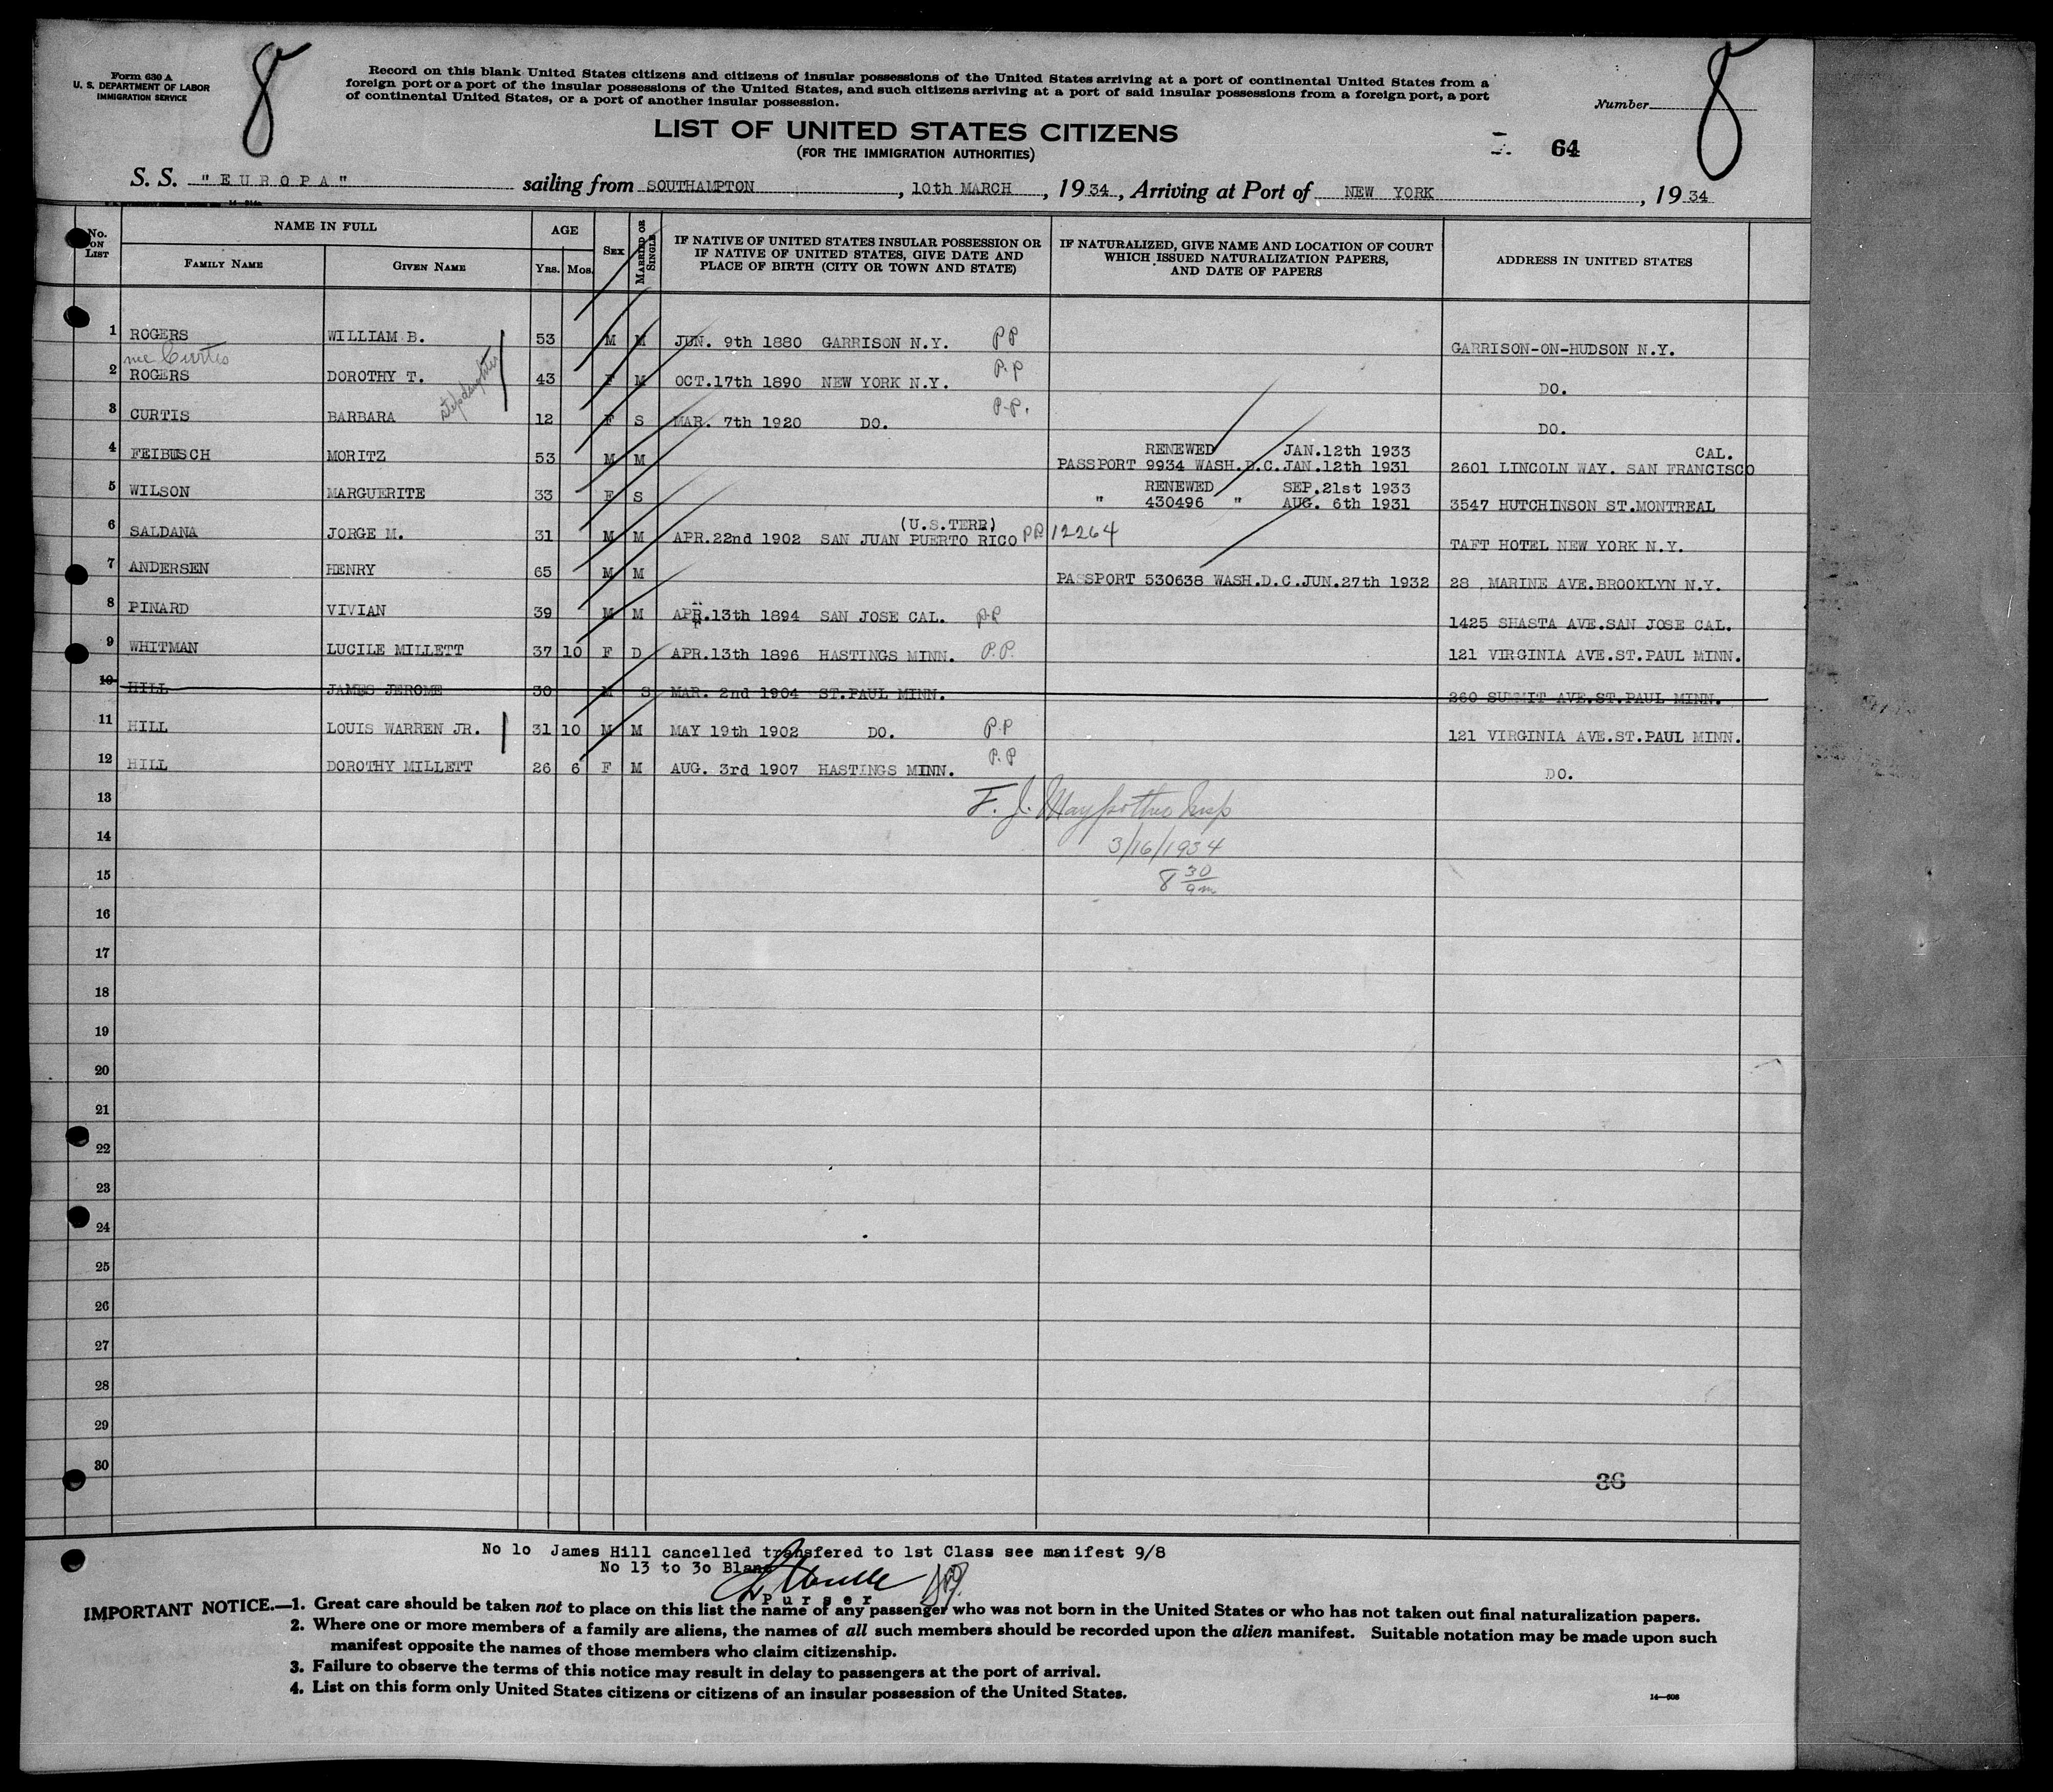 Form 630 A
U. S. DEPARTMENT OF LABOR
IMMIGRATION SERVICE
8
Record on this blank United States citizens and citizens of insular possessions of the United States arriving at a port of continental United States from a
foreign port or a port of the insular possessions of the United States, and such citizens arriving at a port of said insular possessions from a foreign port, a port
of continental United States, or a port of another insular possession.
Number
8
LIST OF UNITED STATES CITIZENS
(FOR THE IMMIGRATION AUTHORITIES)
64
S. S. "EUROPA" sailing from SOUTHAMPTON, 10th MARCH, 1934, Arriving at Port of NEW YORK, 1934
No. ON LIST NAME IN FULL AGE SEX MARRIED OR SINGLE IF NATIVE OF UNITED STATES INSULAR POSSESSION OR IF NATIVE OF UNITED STATES, GIVE DATE AND PLACE OF BIRTH (CITY OR TOWN AND STATE) IF NATURALIZED, GIVE NAME AND LOCATION OF COURT WHICH ISSUED NATURALIZATION PAPERS, AND DATE OF PAPERS ADDRESS IN UNITED STATES
FAMILY NAME GIVEN NAME YRS. MOS.
1 ROGERS WILLIAM B. 53 M M JUN. 9th 1880 GARRISON N.Y. PP GARRISON-ON-HUDSON N.Y.
nee Curtis
2 ROGERS DOROTHY T. 43 F M OCT.17th 1890 NEW YORK N.Y. P.P DO.
stepdaughter
3 CURTIS BARBARA 12 F S MAR. 7th 1920 DO. P.P. DO.
RENEWED JAN.12th 1933 CAL.
4 FEIBUSCH MORITZ 53 M M PASSPORT 9934 WASH.D.C.JAN.12th 1931 2601 LINCOLN WAY. SAN FRANCISCO
RENEWED SEP.21st 1933
5 WILSON MARGUERITE 33 F S " 430496 " AUG. 6th 1931 3547 HUTCHINSON ST.MONTREAL
(U.S.TERR)
6 SALDANA JORGE M. 31 M M APR.22nd 1902 SAN JUAN PUERTO RICO PP 12264 TAFT HOTEL NEW YORK N.Y.
7 ANDERSEN HENRY 65 M M PASSPORT 530638 WASH.D.C.JUN.27th 1932 28 MARINE AVE.BROOKLYN N.Y.
8 PINARD VIVIAN 39 M M APR.13th 1894 SAN JOSE CAL. P.P 1425 SHASTA AVE.SAN JOSE CAL.
9 WHITMAN LUCILE MILLETT 37 10 F D APR.13th 1896 HASTINGS MINN. P.P. 121 VIRGINIA AVE.ST.PAUL MINN.
10 HILL JAMES JEROME 30 M S MAR. 2nd 1904 ST.PAUL MINN. 260 SUMMIT AVE.ST.PAUL MINN.
11 HILL LOUIS WARREN JR. 31 10 M M MAY 19th 1902 DO. P.P 121 VIRGINIA AVE.ST.PAUL MINN.
12 HILL DOROTHY MILLETT 26 6 F M AUG. 3rd 1907 HASTINGS MINN. P.P DO.
13 F. J.
14 3/16/1934
15 8 30 am
16
17
18
19
20
21
22
23
24
25
26
27
28
29
30
36
No 1o James Hill cancelled transfered to 1st Class see manifest 9/8
No 13 to 3o Blanc
Purser
IMPORTANT NOTICE.—1. Great care should be taken not to place on this list the name of any passenger who was not born in the United States or who has not taken out final naturalization papers.
2. Where one or more members of a family are aliens, the names of all such members should be recorded upon the alien manifest. Suitable notation may be made upon such
manifest opposite the names of those members who claim citizenship.
3. Failure to observe the terms of this notice may result in delay to passengers at the port of arrival.
4. List on this form only United States citizens or citizens of an insular possession of the United States.